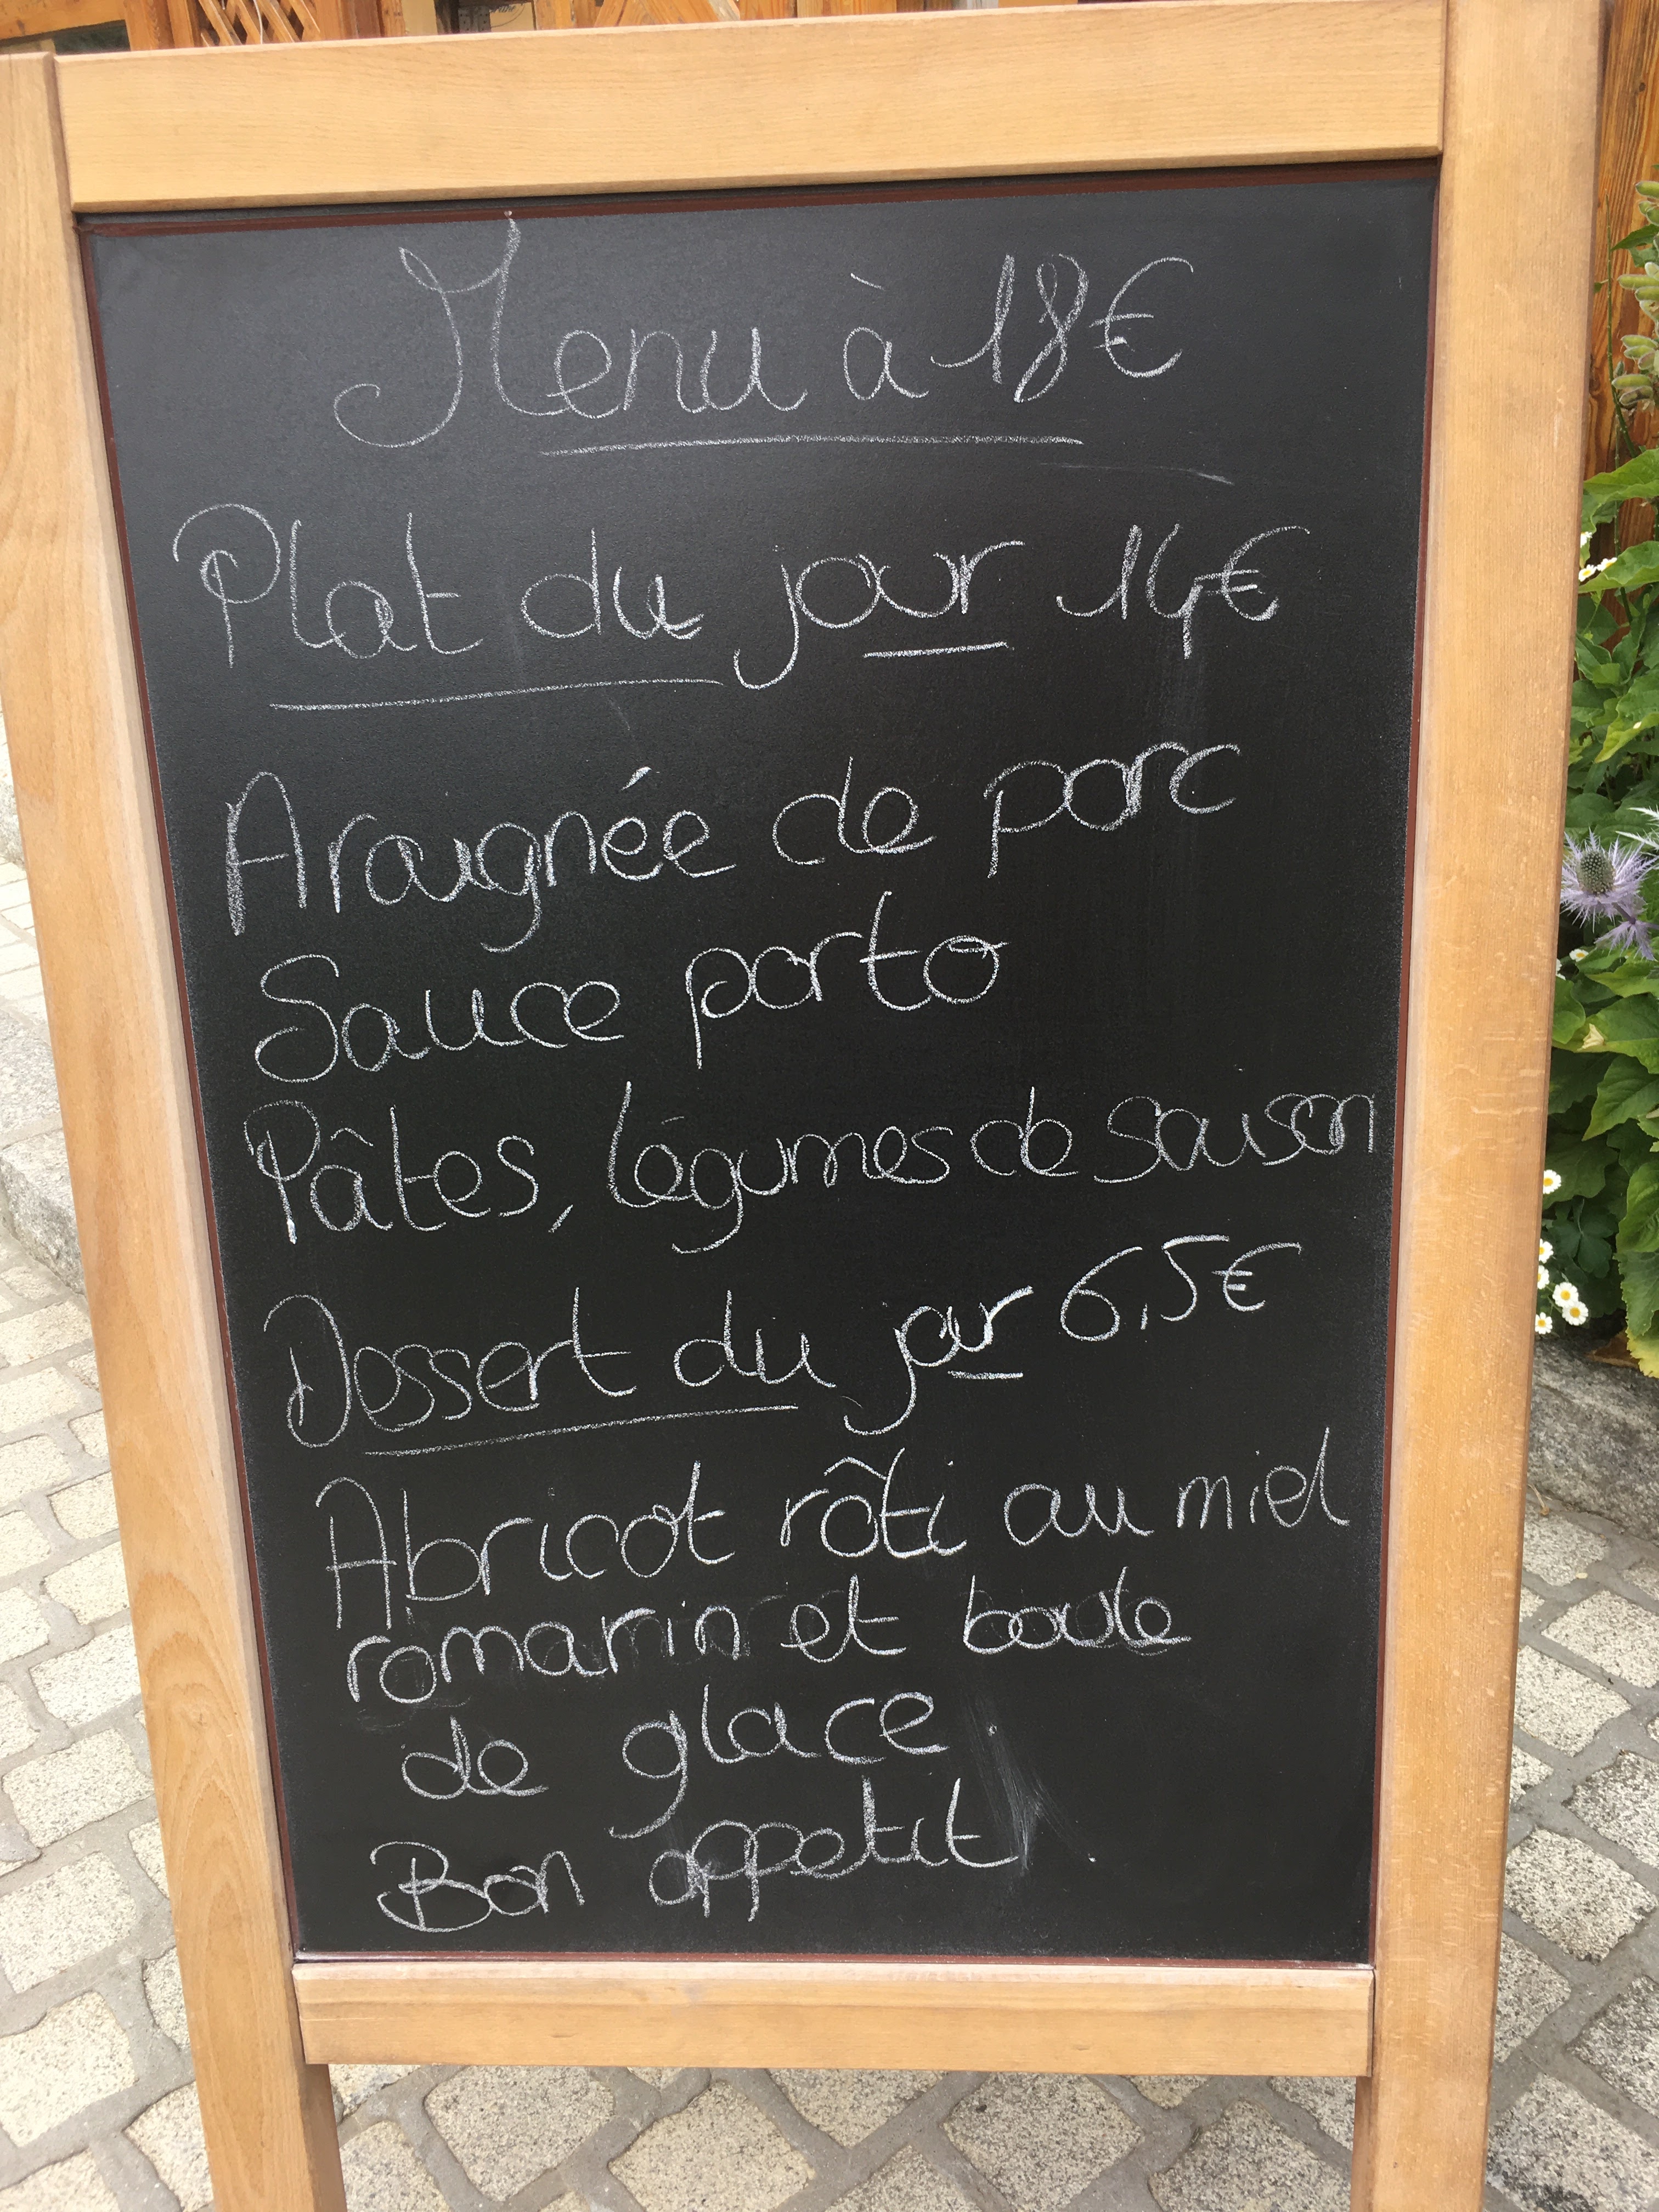 Menu à 18€
Plat du jour 14€
Araignée de porc
Sauce porto
Pâtes, légumes de saison
Dessert du jour 6,5€
Abricot rôti au miel
romarin et boule
de glace.
Bon appetit